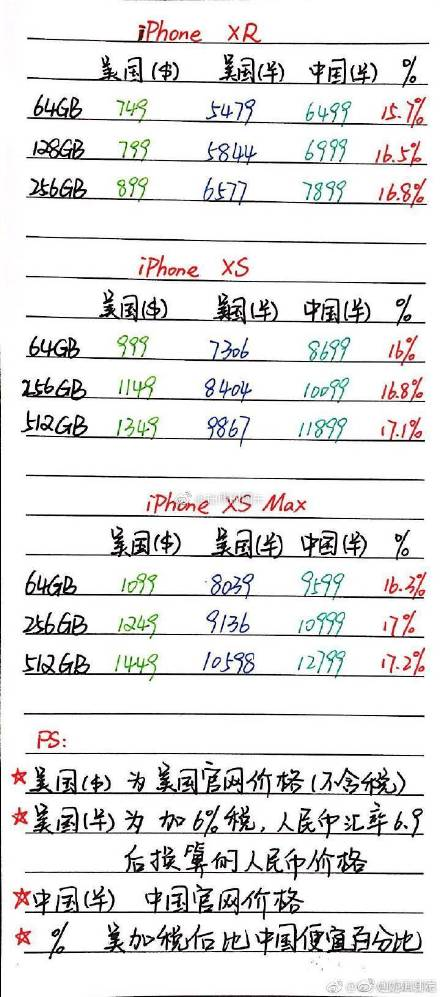 iPhone XR
美国($) 美国(¥) 中国(¥) %
64GB 749 5479 6499 15.7%
128GB 799 5844 6999 16.5%
256GB 899 6577 7899 16.8%
iPhone XS
美国($) 美国(¥) 中国(¥) %
64GB 999 7306 8699 16%
256GB 1149 8404 10099 16.8%
512GB 1349 9867 11899 17.1%
iPhone XS Max
美国($) 美国(¥) 中国(¥) %
64GB 1099 8039 9599 16.3%
256GB 1249 9136 10999 17%
512GB 1449 10598 12799 17.2%
PS:
☆美国($) 为美国官网价格(不含税)
☆美国(¥)为 加6%税,人民币汇率6.9
后换算的人民币价格
☆中国(¥) 中国官网价格
☆ % 美加税后比中国便宜百分比